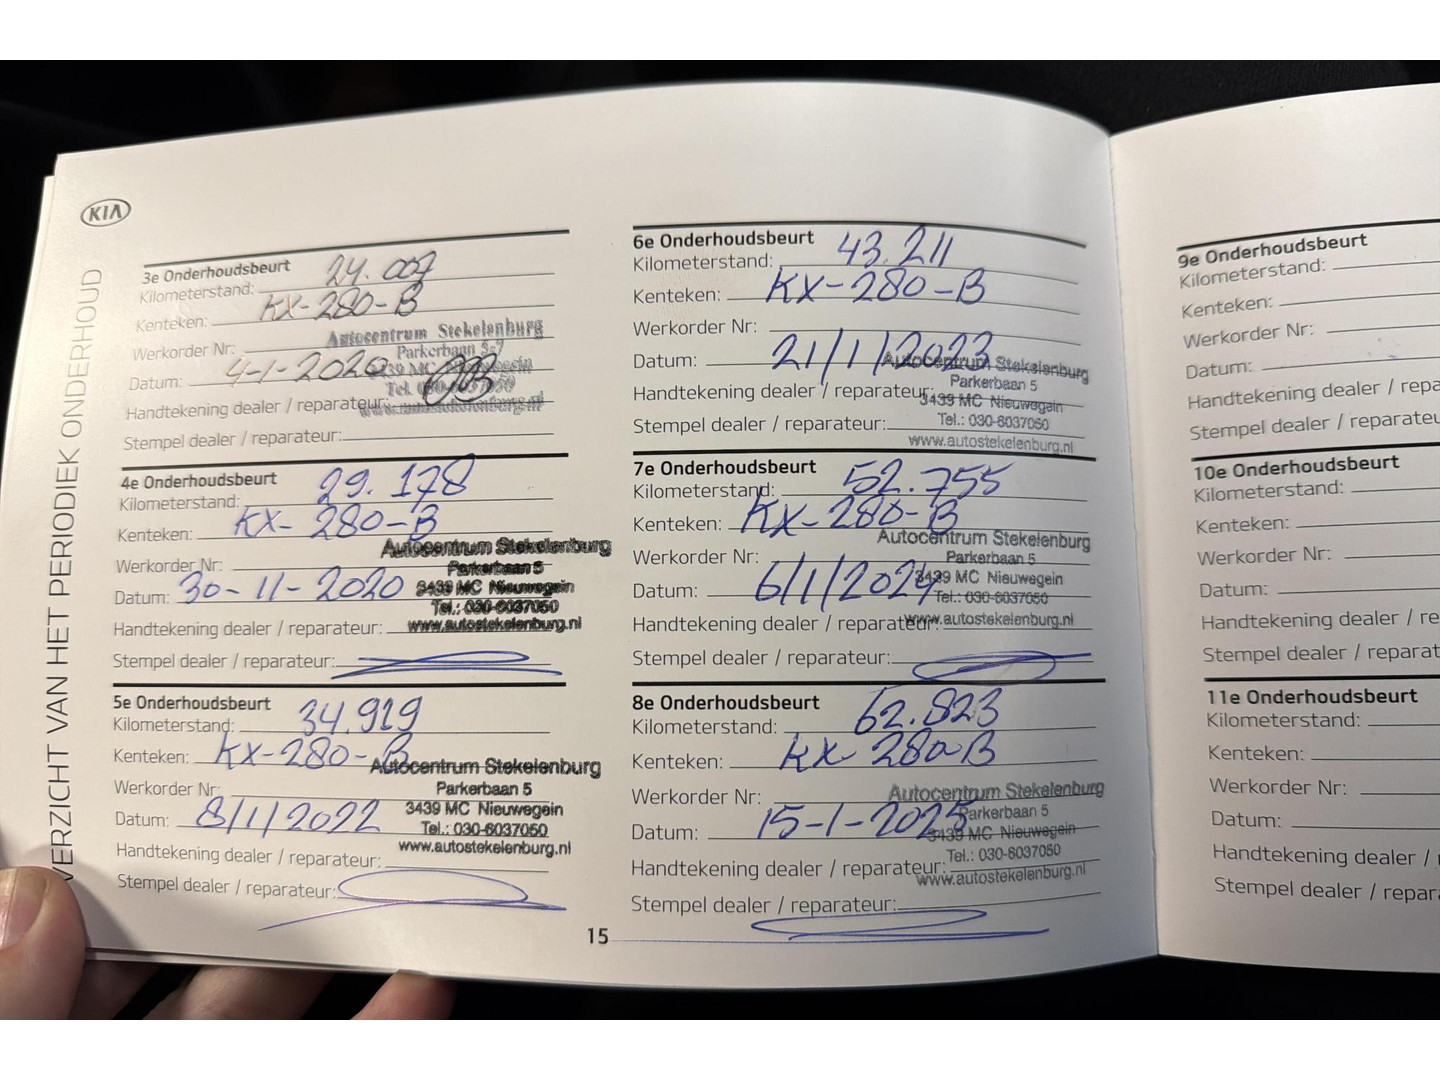 KIA
VERZICHT VAN HET PERIODIEK ONDERHOUD
3e Onderhoudsbeurt
Kilometerstand: 24.007
Kenteken: KX-280-B
Werkorder Nr:
Autocentrum Stekelenburg
Parkerbaan 5-7
3439 MC Nieuwegein
Tel. 030-6037050
www.autostekelenburg.nl
Datum: 4-1-2020
Handtekening dealer / reparateur:
Stempel dealer / reparateur:
4e Onderhoudsbeurt
Kilometerstand: 29.178
Kenteken: KX-280-B
Werkorder Nr:
Autocentrum Stekelenburg
Parkerbaan 5
3439 MC Nieuwegein
Tel.: 030-6037050
www.autostekelenburg.nl
Datum: 30-11-2020
Handtekening dealer / reparateur:
Stempel dealer / reparateur:
5e Onderhoudsbeurt
Kilometerstand: 34.919
Kenteken: KX-280-B
Werkorder Nr:
Autocentrum Stekelenburg
Parkerbaan 5
3439 MC Nieuwegein
Tel.: 030-6037050
www.autostekelenburg.nl
Datum: 8/1/2022
Handtekening dealer / reparateur:
Stempel dealer / reparateur:
6e Onderhoudsbeurt
Kilometerstand: 43.211
Kenteken: KX-280-B
Werkorder Nr:
Datum: 21/1/2023
Autocentrum Stekelenburg
Parkerbaan 5
3439 MC Nieuwegein
Tel.: 030-6037050
www.autostekelenburg.nl
Handtekening dealer / reparateur:
Stempel dealer / reparateur:
7e Onderhoudsbeurt
Kilometerstand: 52.755
Kenteken: KX-280-B
Autocentrum Stekelenburg
Parkerbaan 5
3439 MC Nieuwegein
Tel.: 030-6037050
www.autostekelenburg.nl
Werkorder Nr:
Datum: 6/1/2024
Handtekening dealer / reparateur:
Stempel dealer / reparateur:
8e Onderhoudsbeurt
Kilometerstand: 62.823
Kenteken: KX-280-B
Werkorder Nr:
Autocentrum Stekelenburg
Parkerbaan 5
3439 MC Nieuwegein
Tel.: 030-6037050
www.autostekelenburg.nl
Datum: 15-1-2025
Handtekening dealer / reparateur:
Stempel dealer / reparateur:
15
9e Onderhoudsbeurt
Kilometerstand:
Kenteken:
Werkorder Nr:
Datum:
Handtekening dealer / repa
Stempel dealer / reparateu
10e Onderhoudsbeurt
Kilometerstand:
Kenteken:
Werkorder Nr:
Datum:
Handtekening dealer / re
Stempel dealer / reparat
11e Onderhoudsbeurt
Kilometerstand:
Kenteken:
Werkorder Nr:
Datum:
Handtekening dealer /
Stempel dealer / repar